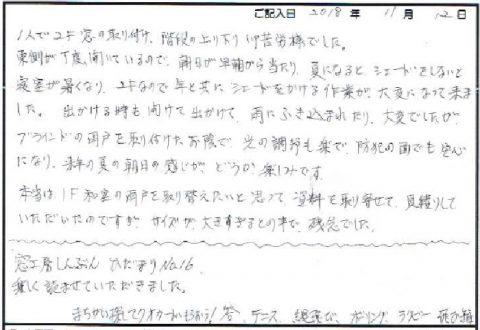 ご記入日 2018年 11月 12日
1人で2F窓の取り付け、階段の上り下り御苦労様でした。
東側が丁度、開いているので、朝日が早朝から当たり、夏になると、シェードをしないと
寝室が暑くなり、2Fなので年と共に、シェードをかける作業が、大変になって来ま
した。 出かける時も開けて出かけて、雨にふき込まれたり、大変でしたが、
ブラインドの雨戸を取り付けたお陰で、光の調節も楽で、防犯の面でも安心
になり、来年の夏の朝日の感じが、どうか楽しみです。
本当は1F和室の雨戸を取り替えたいと思って資料を取り寄せて、見積りして
いただいたのですが、サイズが、大きすぎるとの事で、残念でした。
窓工房しんぶん ひだまりNo.16
楽しく読ませていただきました。
まちがい探しでクオカードもらおう! 答、テニス、 ボーリング、ラグビー